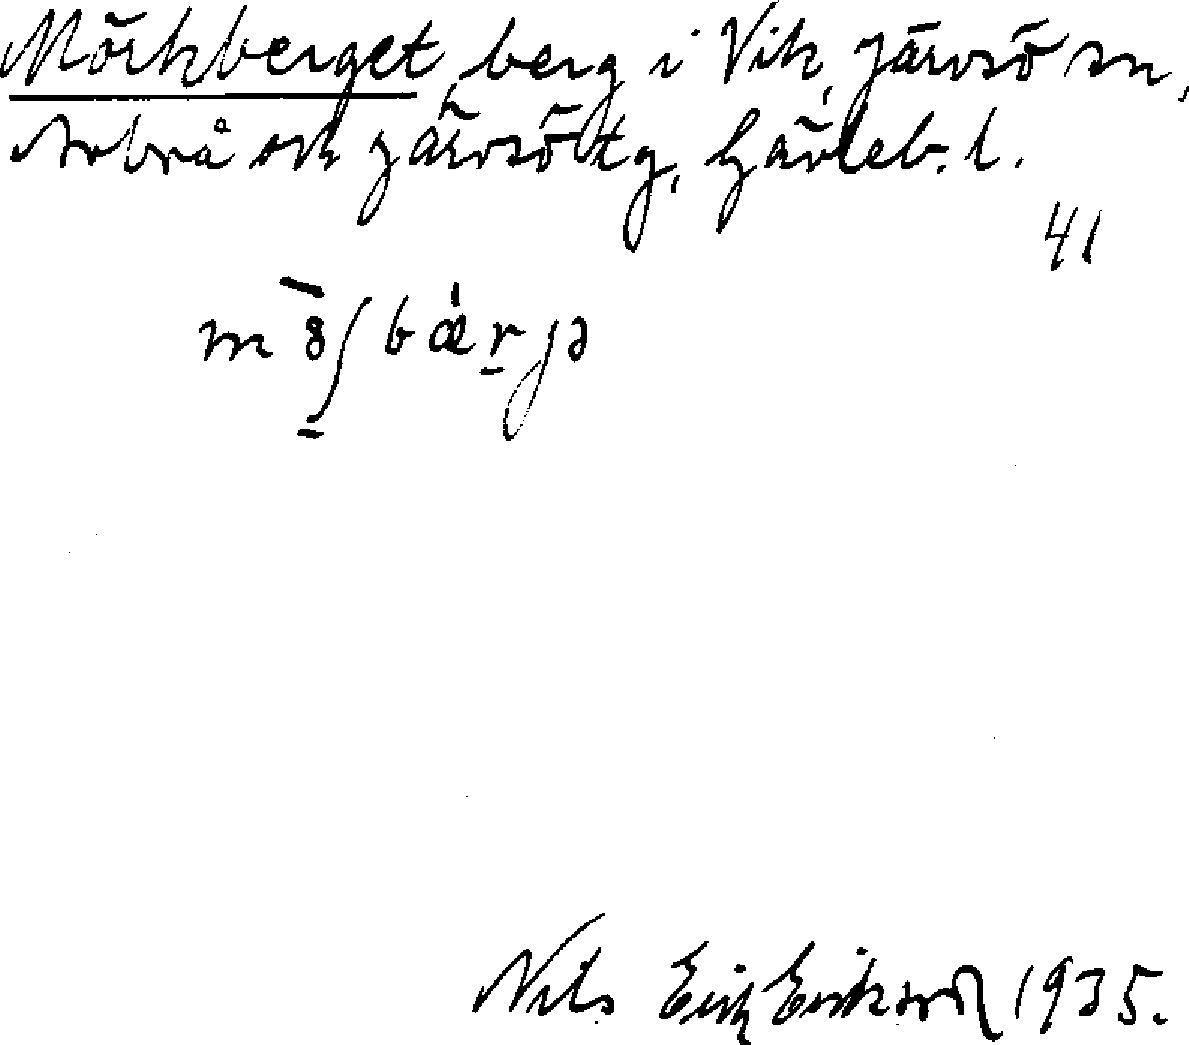 Mörkberget, berg i Vik, Järvsö sn,
Arbrå och Järvsö tg, Gävleb. l.
41
Nils Erik Eriksson 1935.